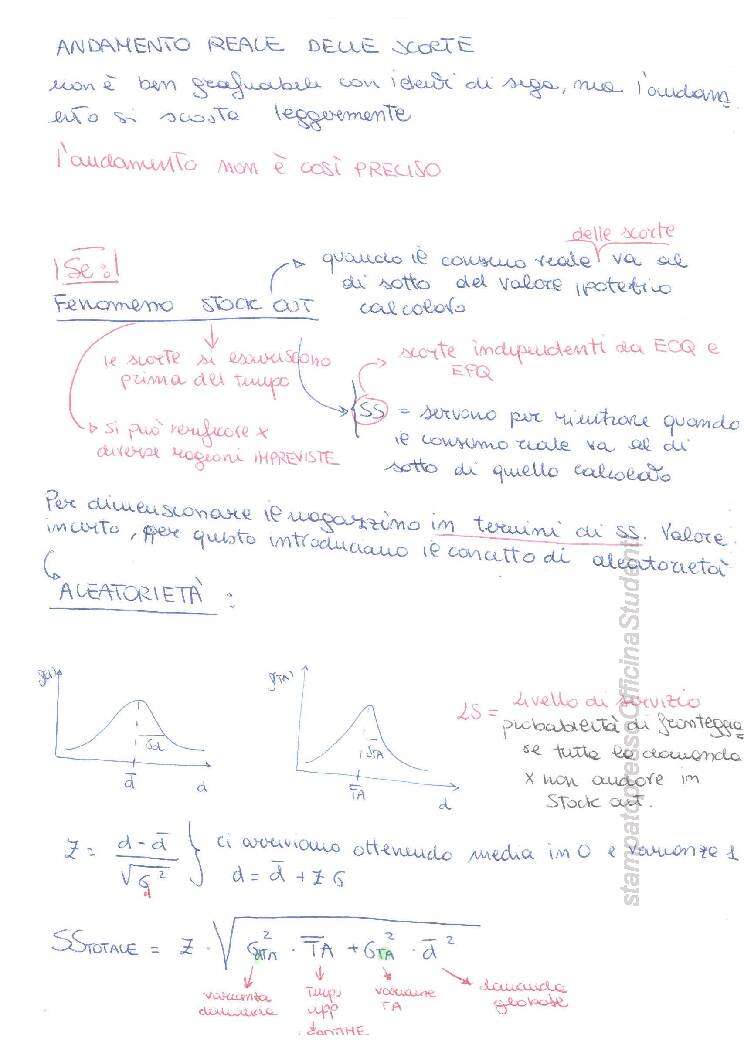 ANDAMENTO REALE DELLE SCORTE
non è ben graficabile con identi di sega, ma l'andam
ento si scosta leggermente
l'andamento non è così PRECISO
Se:
delle scorte
quando il consumo reale va al
di sotto del valore ipotetico
calcolato
Fenomeno STOCK OUT
le scorte si esauriscono
prima del tempo
scorte indipendenti da EOQ e
EPQ
SS = servono per rientrare quando
il consumo reale va al di
sotto di quello calcolato
si può verificare x
diverse ragioni IMPREVISTE
Per dimensionare il magazzino in termini di SS. Valore
incerto, per questo introduciamo il concetto di aleatorietà
ALEATORIETÀ :
g(d)
σd
d̄
d
g(TA)
σTA
T̄A
d
LS = Livello di servizio
probabilità di fronteggia
re tutta la domanda
x non andare in
Stock out.
Z = (d - d̄) / √σd² } ci arriviamo ottenendo media in 0 e varianza 1
d = d̄ + Z σ
SS TOTALE = Z · √ σdTA² · T̄A + σTA² · d̄²
varianza
domanda
Tempo
app
varianza
TA
domanda
globale
stampato presso Officina Studenti